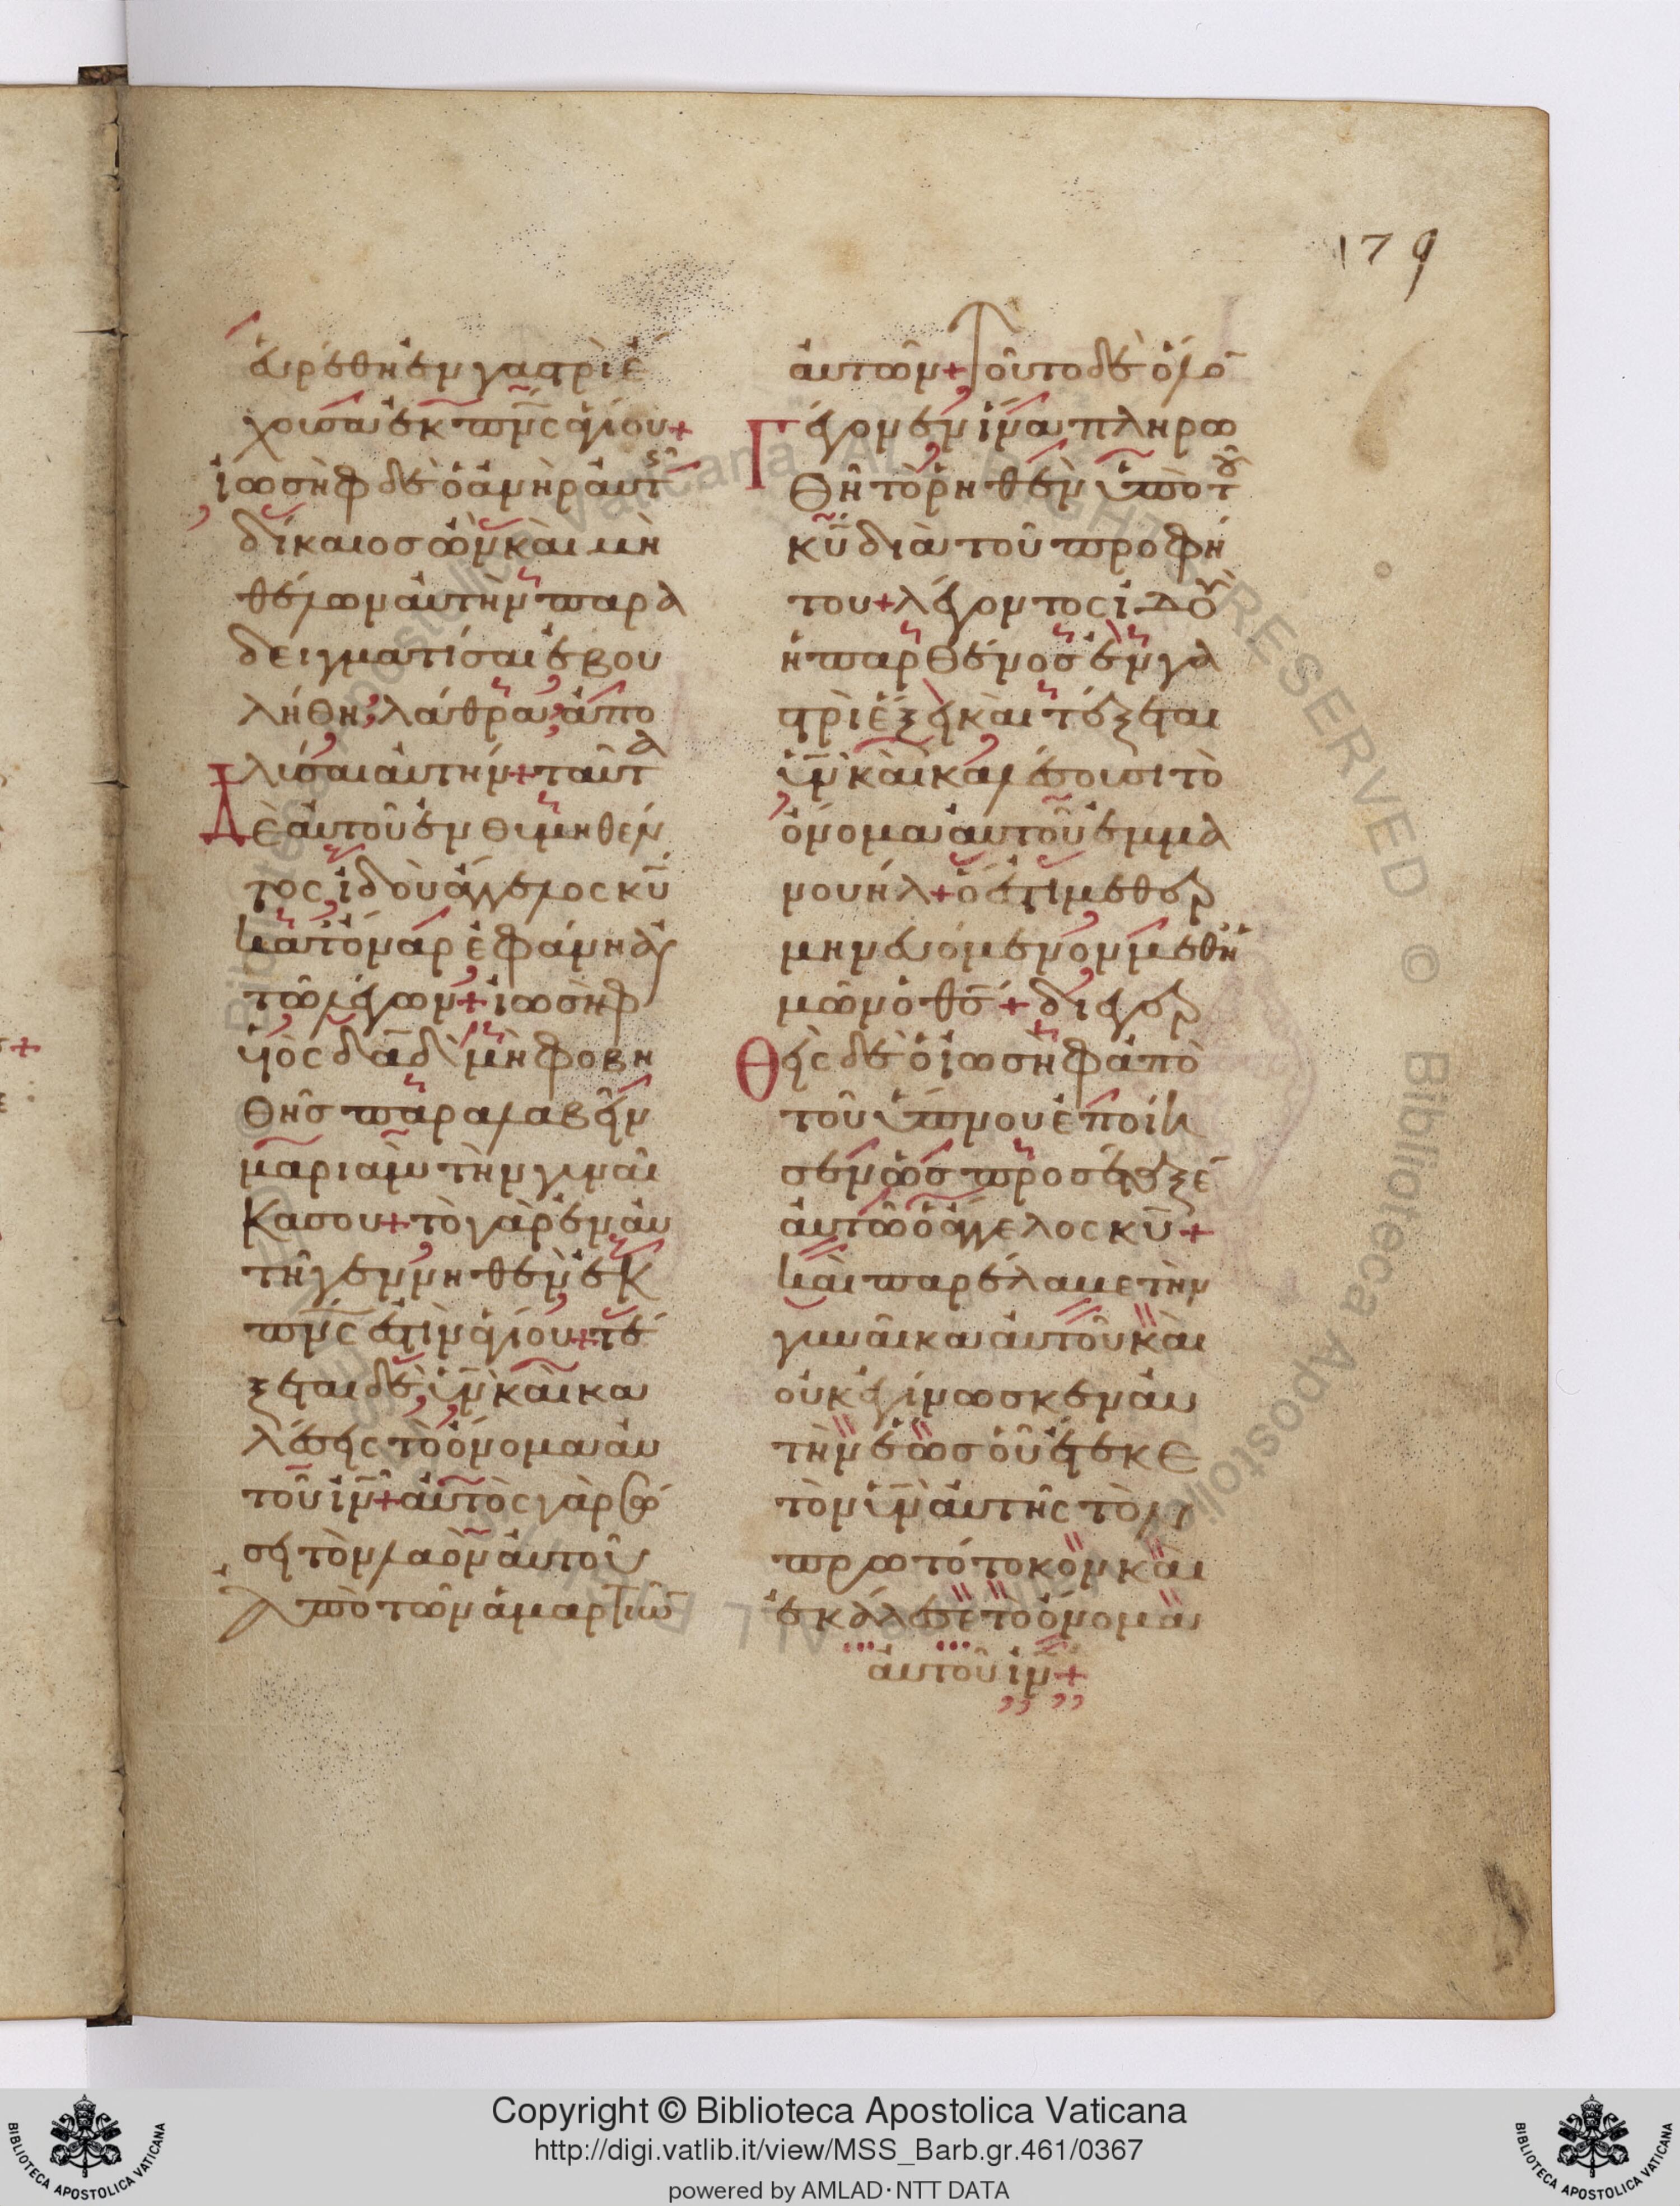 179
ἑυρέθη ἐν γαστρὶ ἔ
χουσα ἐκ πν̅ς ἁγίου +
ἰωσὴφ δὲ ὁ ἀνὴρ αὐτ
δίκαιοσ ὢν καὶ μὴ
θέλων αὐτὴν παρα
δειγματίσαι ἐβου
λήθη, λάθρα ἀπο
λύσαι αὐτήν + ταῦτα
Δὲ αὐτοῦ ἐνθυμηθέν
τος ἰδοὺ ἄγγελος κυ̅
κατόναρ ἐφάνη ἀυ
τῶ λέγων + ἰωσὴφ
ὑιὸς δα̅δ μὴ φοβη
θῆσ παραλαβεῖν
μαριὰμ τὴν γυναῖ
κα σου + τὸ γὰρ ἐν ἀυ
τῆ γεννηθὲν ἐκ
πν̅ς ἐστιν ἁγίου + τέ
ξεται δὲ υἱν̅ καὶ κα
λέσεις τὸ ὄνομα ἀυ
τοῦ ιν̅ + αὐτὸς γὰρ σώ
σει τὸν λαὸν αὐτοῦ
ἀπὸ τῶν ἁμαρτιῶ
ἀυτῶν + τοῦτο δὲ ὅλο
Γέγονεν ἵνα πληρω
θῆ τὸ ῥηθὲν ὑπὸ τοῦ
κυ̅ διὰ τοῦ προφή
του + λέγοντος ἰδοὺ
ἡ παρθένοσ ἐν γα
στρὶ ἕξει καὶ τέξεται
υἱν̅ καὶ καλέσουσι τὸ
ὄνομα αὐτοῦ ἐμμα
νουήλ + ὅ ἐστι μεθερ
μηνευόμενον μεθη
μῶν ὁ θσ̅ + διεγερ
Θεὶς δὲ ὁ ἰωσὴφ ἀπὸ
τοῦ ὕπνου ἐποίη
σεν ὡσ προσέταξε
ἀυτῶ ὁ ἄγγελος κυ̅ +
καὶ παρέλαβε τὴν
γυναῖκα αὐτοῦ καὶ
οὐκ ἐγίνωσκεν ἀυ
τὴν ἕωσ οὗ ἔτεκε
τὸν υἱν̅ αὐτῆς τὸν
πρωτότοκον καὶ
ἐκάλεσε τὸ ὄνομα
αὐτοῦ ιν̅ +
Copyright © Biblioteca Apostolica Vaticana
http://digi.vatlib.it/view/MSS_Barb.gr.461/0367
powered by AMLAD·NTT DATA